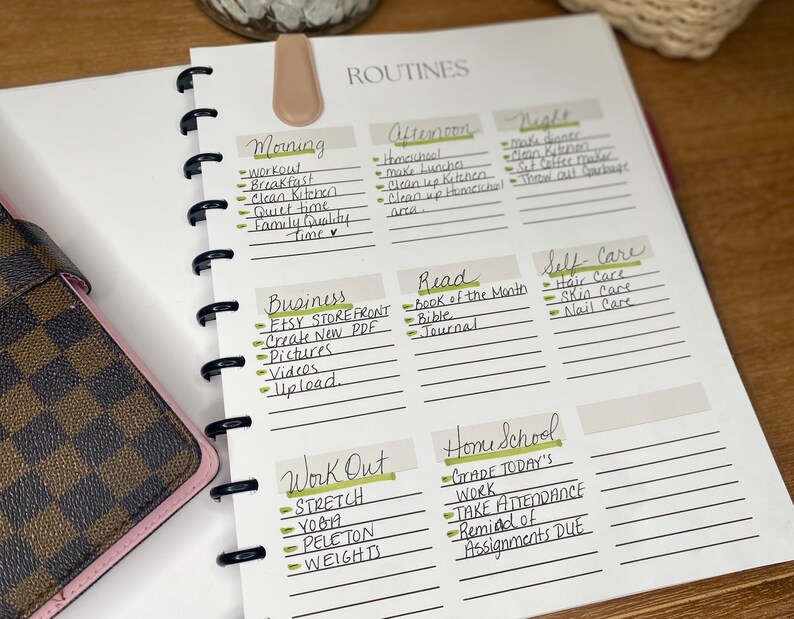 ROUTINES
Morning
Workout
Breakfast
Clean Kitchen
Quiet time
Family Quality
time ♥
Afternoon
Homeschool
make Lunches
Clean up Kitchen
Clean up Homeschool
area.
Night
make dinner
Clean Kitchen
Set Coffee maker
Throw out Garbage
Business
ETSY STOREFRONT
Create New PDF
Pictures
Videos
Upload.
Read
Book of the Month
Bible
Journal
Self-Care
Hair Care
Skin Care
Nail Care
Work Out
STRETCH
YOGA
PELETON
WEIGHTS
Home School
GRADE TODAY'S
WORK
TAKE ATTENDANCE
Remind of
Assignments DUE